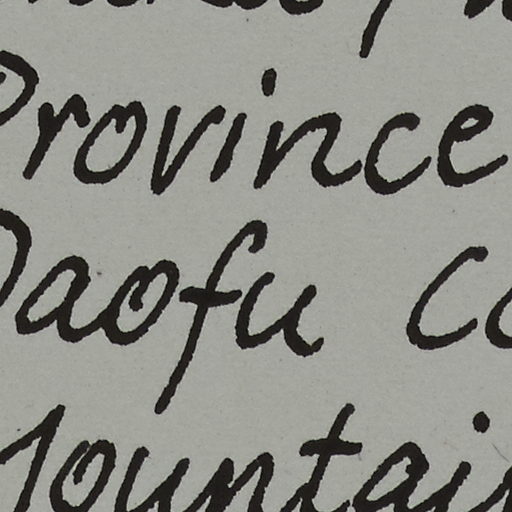 Province
Daofu Co
Mountain